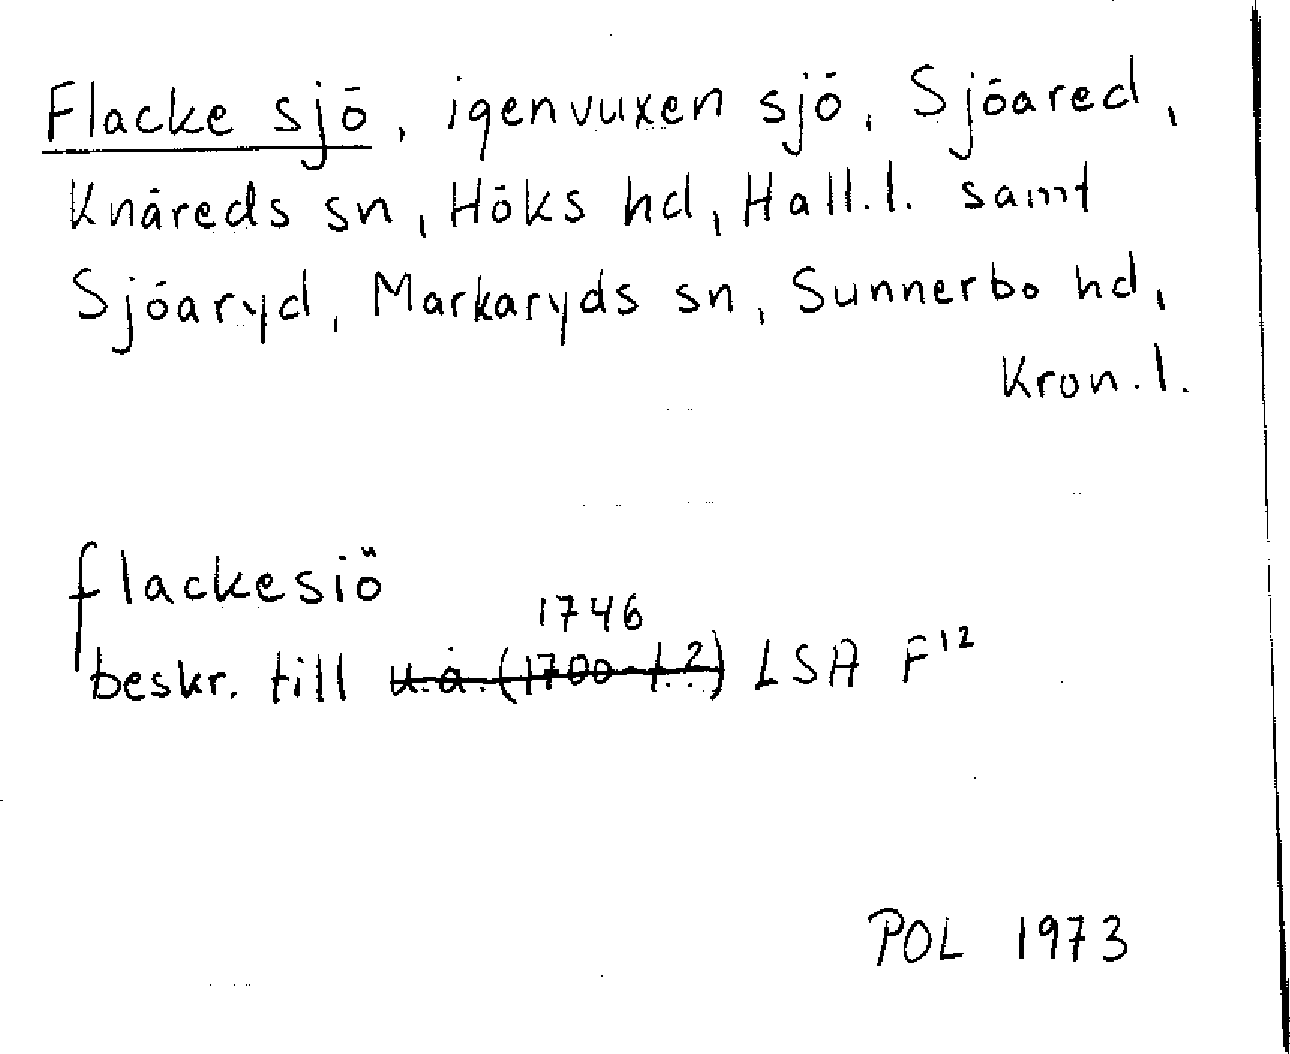 Flacke sjö, igenvuxen sjö, Sjöared,
Knäreds sn, Höks hd, Hall.l. samt
Sjöaryd, Markaryds sn, Sunnerbo hd,
Kron.l.
flackesiö
1746
beskr. till u.å. (1700-t.?) LSA F12
POL 1973